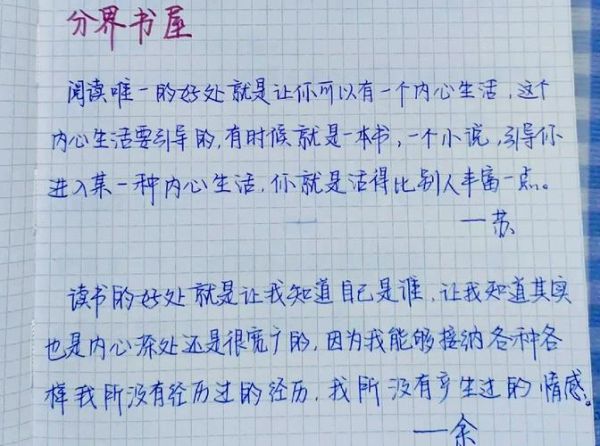 分界书屋
阅读唯一的好处就是让你可以有一个内心生活，这个
内心生活要引导的，有时候就是一本书，一个小说，引导你
进入某一种内心生活，你就是活得比别人丰富一点。
—苏
读书的好处就是让我知道自己是谁，让我知道其实
也是内心深处还是很宽广的，因为我能够接纳各种各
样我所没有经历过的经历，我所没有产生过的情感。
—余